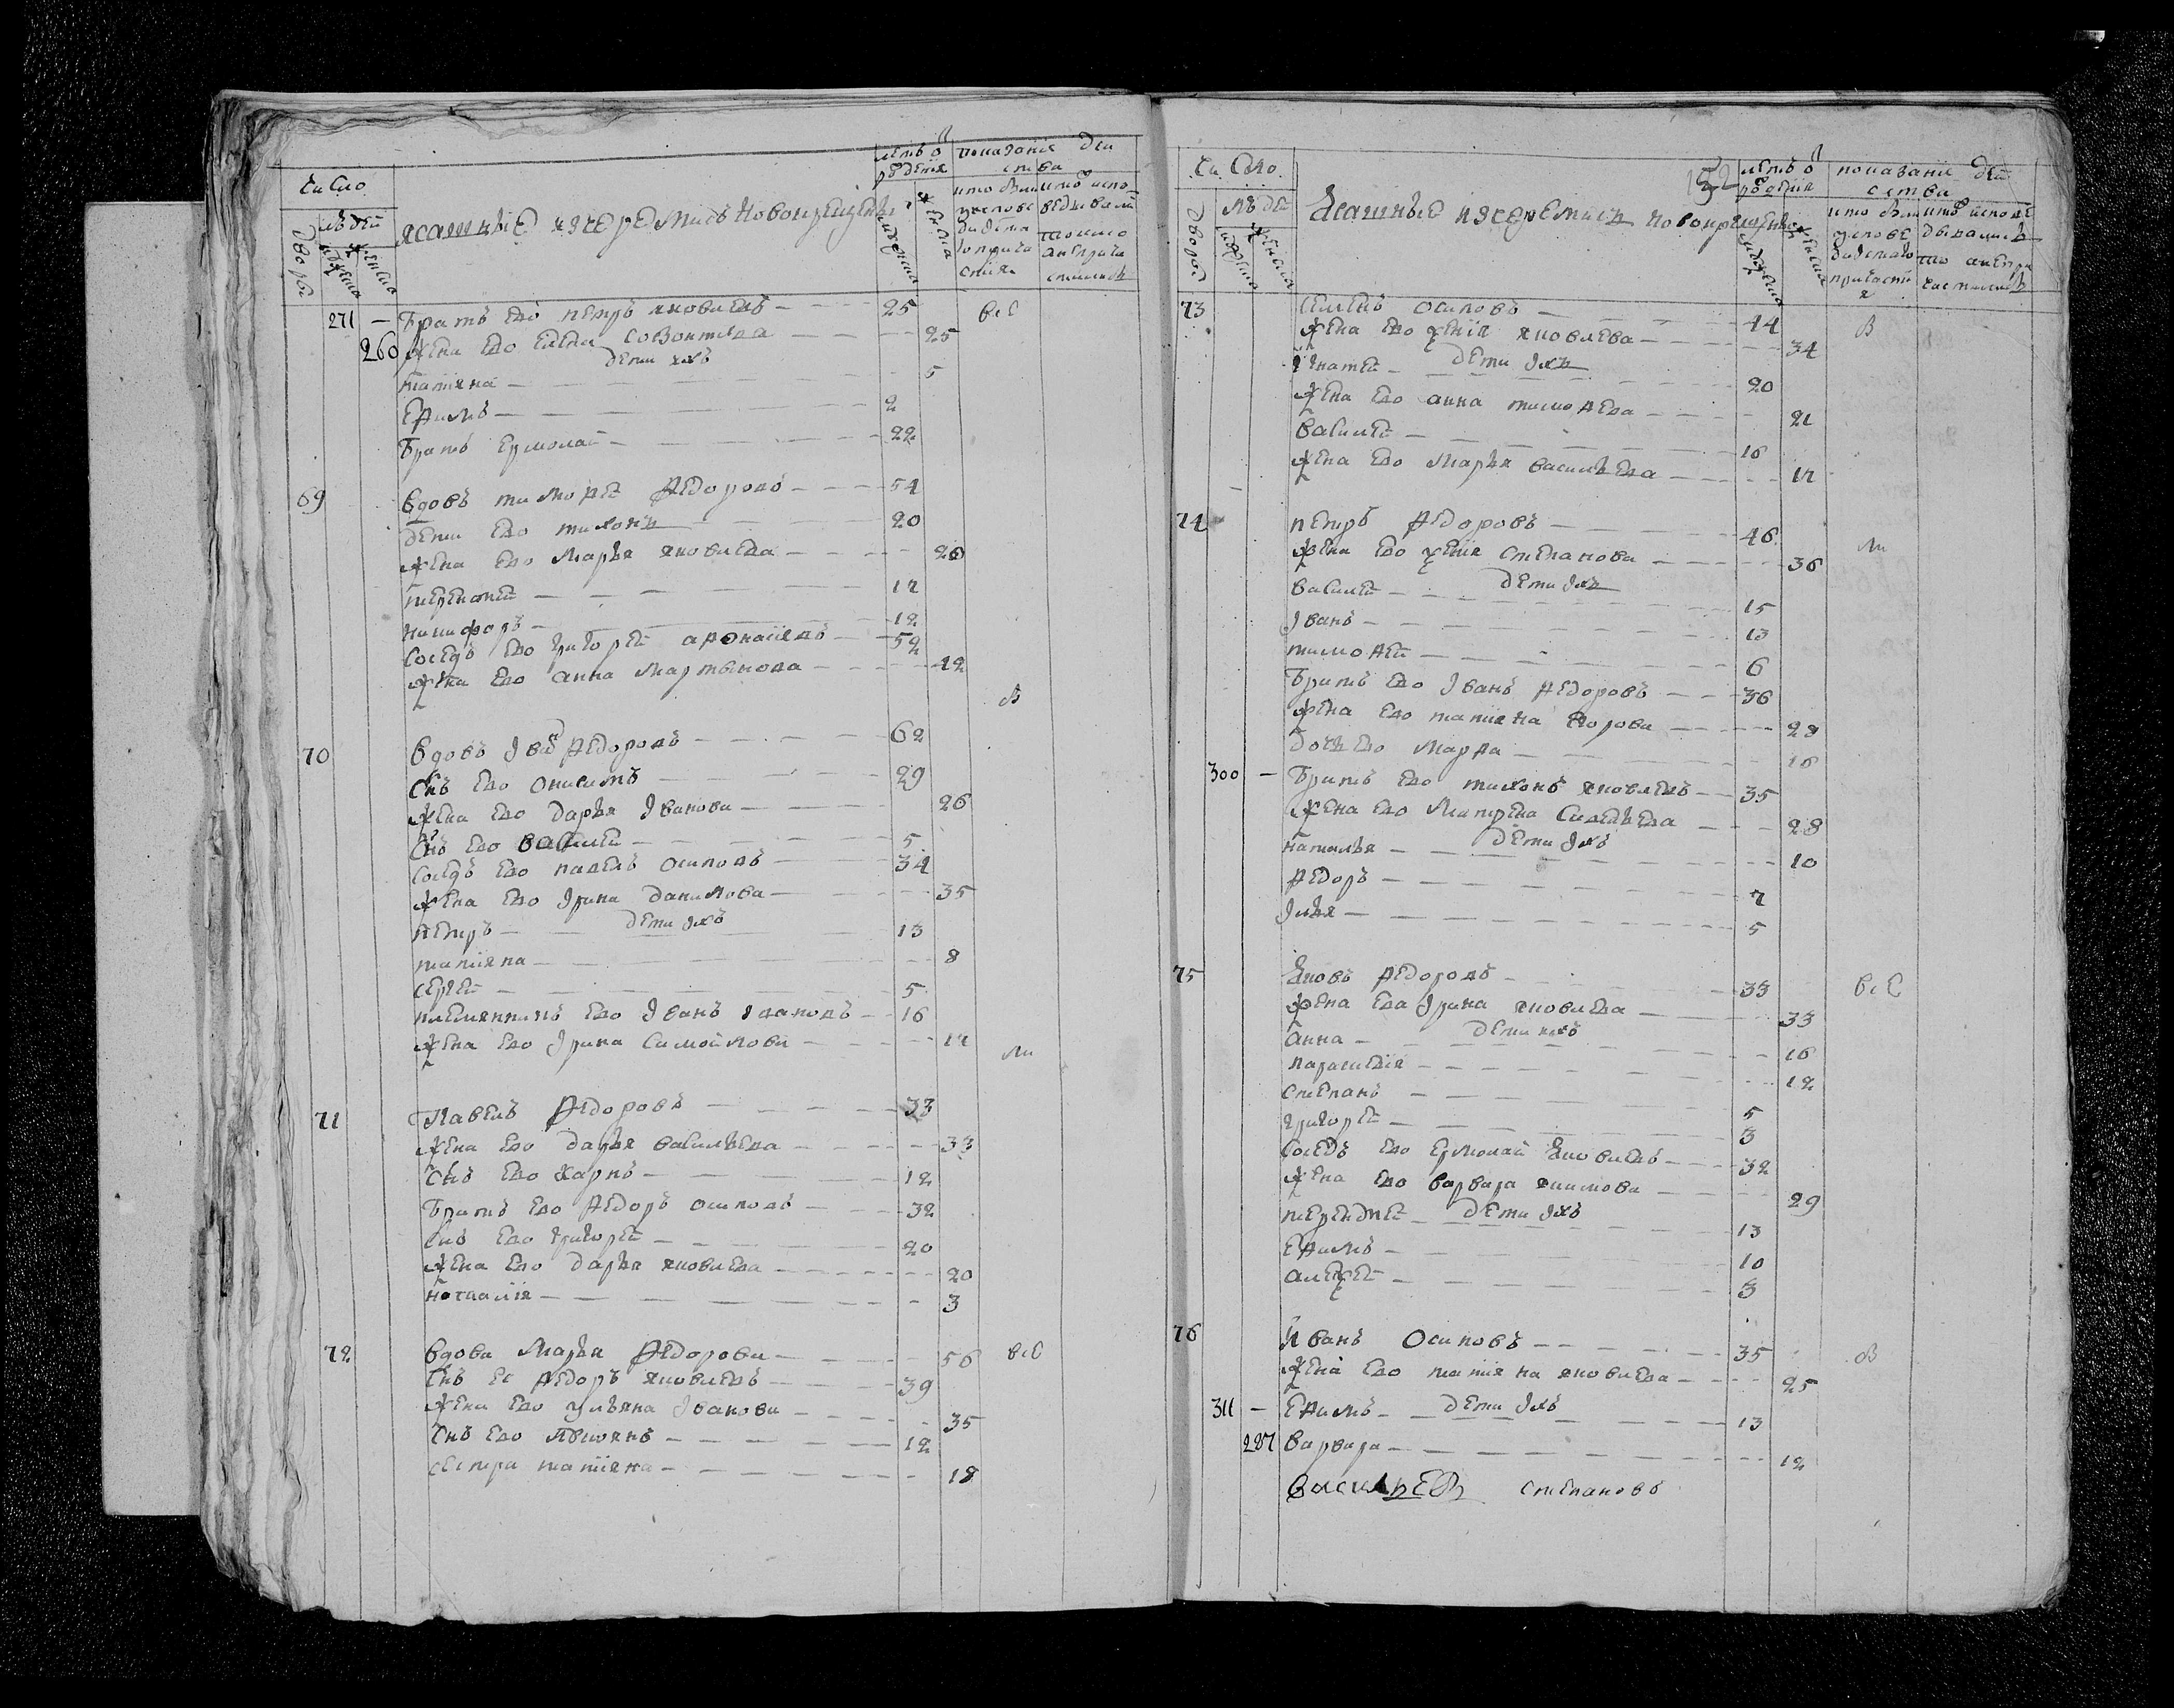 число
дворы
людей
мужеска
женска
ясашные изчеремисъ новокрещены
лѣтъ о рождения
мужеска
женска
показание действа
271 — братъ ево петръ яковлевъ — 25 все
260 жена ево елена — 25
дети ихъ
татияна — 5
ефимъ — 2
братъ ермолай — 22
69 вдовъ тимофей федоровъ — 54
дети ево тихонъ — 20
жена ево марья яковлева — 26
терентей — 17
никифоръ — 12
соседъ ево григорей афонасиевъ — 52
жена ево анна мартынова — 42
в
70 вдовъ иванъ федоровъ — 62
снъ ево онисимъ — 29
жена ево дарья иванова — 26
снъ ево василей — 5
соседъ ево павелъ осиповъ — 34
жена ево ирина данилова — 35
дети ихъ
петръ — 13
татияна — 8
сергей — 5
племянникъ ево иванъ ивановъ — 16
жена ево ирина самойлова — 17
ли
71 павелъ федоровъ — 33
жена ево дарья васильева — 33
снъ ево карпъ — 12
братъ ево федоръ осиповъ — 32
снъ ево григорей — 20
жена ево дарья яковлева — 20
наталия — 3
72 вдова марья федорова — 56 все
снъ ее федоръ яковлевъ — 39
жена ево ульяна иванова — 35
снъ ево — 12
сестра татияна — 18
152
число
дворы
людей
мужеска
женска
ясашные изчеремисъ новокрещены
лѣтъ о рождения
мужеска
женска
показание действа
73 семенъ осиповъ — 44 в
жена ево ксения яковлева — 34
дети ихъ
игнатей — 20
жена ево анна тимофева — 21
василей — 16
жена ево марья васильева — 17
74 петръ федоровъ — 46
ли
жена ево ксения степанова — 36
дети ихъ
василей — 15
иванъ — 13
тимофей — 6
братъ ево иванъ федоровъ — 36
жена ево татияна егорова — 28
дочь ево марфа — 10
300 — братъ ево тихонъ яковлевъ — 35
жена ево матрена савельева — 28
дети ихъ
наталья — 10
федоръ — 7
илья — 5
75 яковъ федоровъ — 33 все
жена ево ирина яковлева — 33
дети ихъ
анна — 16
парасковия — 12
степанъ — 5
григорей — 3
соседъ ево ермолай яковлевъ — 32
жена ево варвара якимова — 29
терентей — дети ихъ 13
ефимъ — 10
алексей — 3
76 иванъ осиповъ — 35 в
жена ево татияна яковлева — 25
311 — ефимъ — дети ихъ 13
287 варвара — 12
васильевъ степановъ